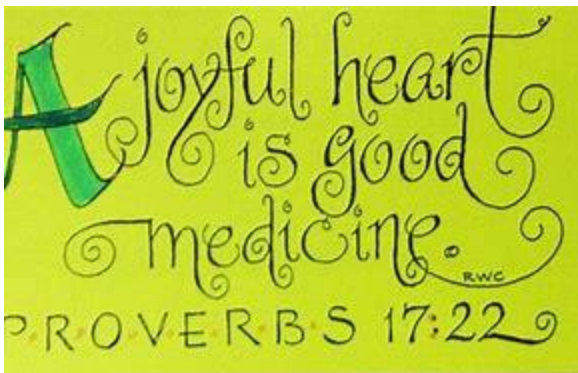 A joyful heart
is good
medicine.
© RWC
P·R·O·V·E·R·B·S 17:22